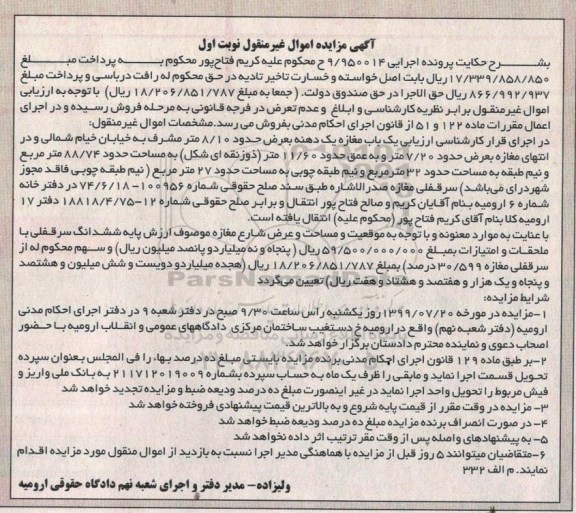 آگهی مزایده اموال غیرمنقول نوبت اول
بشرح حکایت پرونده اجرایی ۹/۹۵۰۰۱۴ ح محکوم علیه کریم فتاح‌پور محکوم به پرداخت مبلغ
۱۷/۳۳۹/۸۵۸/۸۵۰ ریال بابت اصل خواسته و خسارت تاخیر تادیه در حق محکوم له رافت درباسی و پرداخت مبلغ
۸۶۶/۹۹۲/۹۳۷ ریال حق الاجرا در حق صندوق دولت. (جمعا به مبلغ ۱۸/۲۰۶/۸۵۱/۷۸۷ ریال) با توجه به ارزیابی
اموال غیرمنقول برابر نظریه کارشناسی و ابلاغ و عدم تعرض در فرجه قانونی به مرحله فروش رسیده و در اجرای
اعمال مقررات ماده ۱۲۲ و ۵۱ از قانون اجرای احکام مدنی بفروش می رسد. مشخصات اموال غیرمنقول:
در اجرای قرار کارشناسی ارزیابی یک باب مغازه یک دهنه بعرض حدود ۸/۱۰ متر مشرف به خیابان خیام شمالی و در
انتهای مغازه بعرض حدود ۷/۲۰ متر و به عمق حدود ۱۱/۶۰ متر (ذوزنقه ای شکل) به مساحت حدود ۸۸/۷۴ متر مربع
و نیم طبقه به مساحت حدود ۳۲ متر مربع و نیم طبقه چوبی به مساحت حدود ۲۷ متر مربع (نیم طبقه چوبی فاقد مجوز
شهرداری می‌باشد) سرقفلی مغازه صدرالاشاره طبق سند صلح حقوقی شماره ۱۰۰۹۵۶-۷۴/۶/۱۸ در دفتر خانه
شماره ۶ ارومیه بنام آقایان کریم و صالح فتاح پور انتقال و برابر صلح حقوقی شماره ۱۲-۱۸۸۱۸/۴/۷۵ دفتر ۱۷
ارومیه کلا بنام آقای کریم فتاح پور (محکوم علیه) انتقال یافته است.
با عنایت به موارد معنونه و با توجه به موقعیت و مساحت و عرض شارع مغازه موصوف ارزش پایه ششدانگ سرقفلی با
ملحقات و امتیازات بمبلغ ۵۹/۵۰۰/۰۰۰/۰۰۰ ریال (پنجاه و نه میلیارد و پانصد میلیون ریال) و سهم محکوم له از
سرقفلی مغازه ۳۰/۵۹۹ درصد) بمبلغ ۱۸/۲۰۶/۸۵۱/۷۸۷ ریال (هجده میلیارد و دویست و شش میلیون و هشتصد
و پنجاه و یک هزار و هفتصد و هشتاد و هفت ریال) تعیین می‌گردد
شرایط مزایده:
۱-مزایده در مورخه ۱۳۹۹/۰۷/۲۰ روز یکشنبه راس ساعت ۹/۳۰ صبح در دفتر شعبه ۹ در دفتر اجرای احکام مدنی
ارومیه (دفتر شعبه نهم) واقع در ارومیه خ دستغیب ساختمان مرکزی دادگاههای عمومی و انقلاب ارومیه با حضور
اصحاب دعوی و نماینده محترم دادستان برگزار خواهد شد.
۲-بر طبق ماده ۱۲۹ قانون اجرای احکام مدنی برنده مزایده بایستی مبلغ ده درصد بها، را فی المجلس بعنوان سپرده
تحویل قسمت اجرا نماید و مابقی را ظرف یک ماه به حساب سپرده بشماره ۲۱۱۷۱۲۰۱۹۰۰۹ به بانک ملی واریز و
فیش مربوط را تحویل واحد اجرا نماید در غیر اینصورت مبلغ ده درصد ودیعه ضبط و مزایده تجدید خواهد شد
۳- مزایده در وقت مقرر از قیمت پایه شروع و به بالاترین قیمت پیشنهادی فروخته خواهد شد
۴- در صورت انصراف برنده مزایده مبلغ ده درصد ودیعه ضبط خواهد شد
۵- به پیشنهادهای واصله پس از وقت مقرر ترتیب اثر داده نخواهد شد
۶-متقاضیان میتوانند ۵ روز قبل از مزایده با هماهنگی مدیر اجرا نسبت به بازدید از اموال منقول مورد مزایده اقدام
نمایند. م الف ۳۳۲
ولیزاده- مدیر دفتر و اجرای شعبه نهم دادگاه حقوقی ارومیه